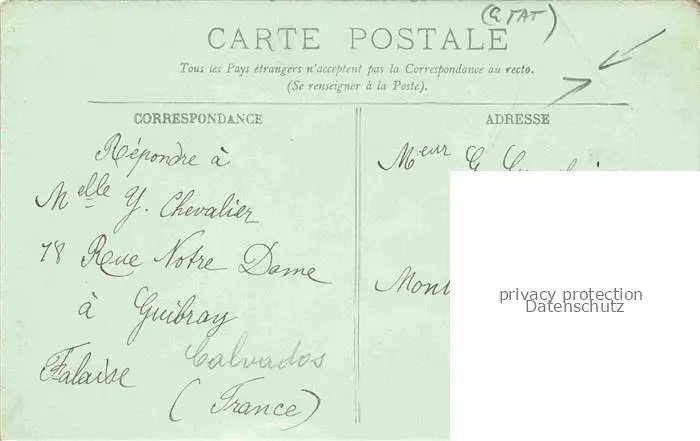 CARTE POSTALE
Tous les Pays étrangers n'acceptent pas la Correspondance au recto.
(Se renseigner à la Poste).
CORRESPONDANCE
Répondre à
Melle Y. Chevalier
78 Rue Notre Dame
à Guibray
Falaise Calvados
(France)
ADRESSE
Meur G.
privacy protection
Datenschutz